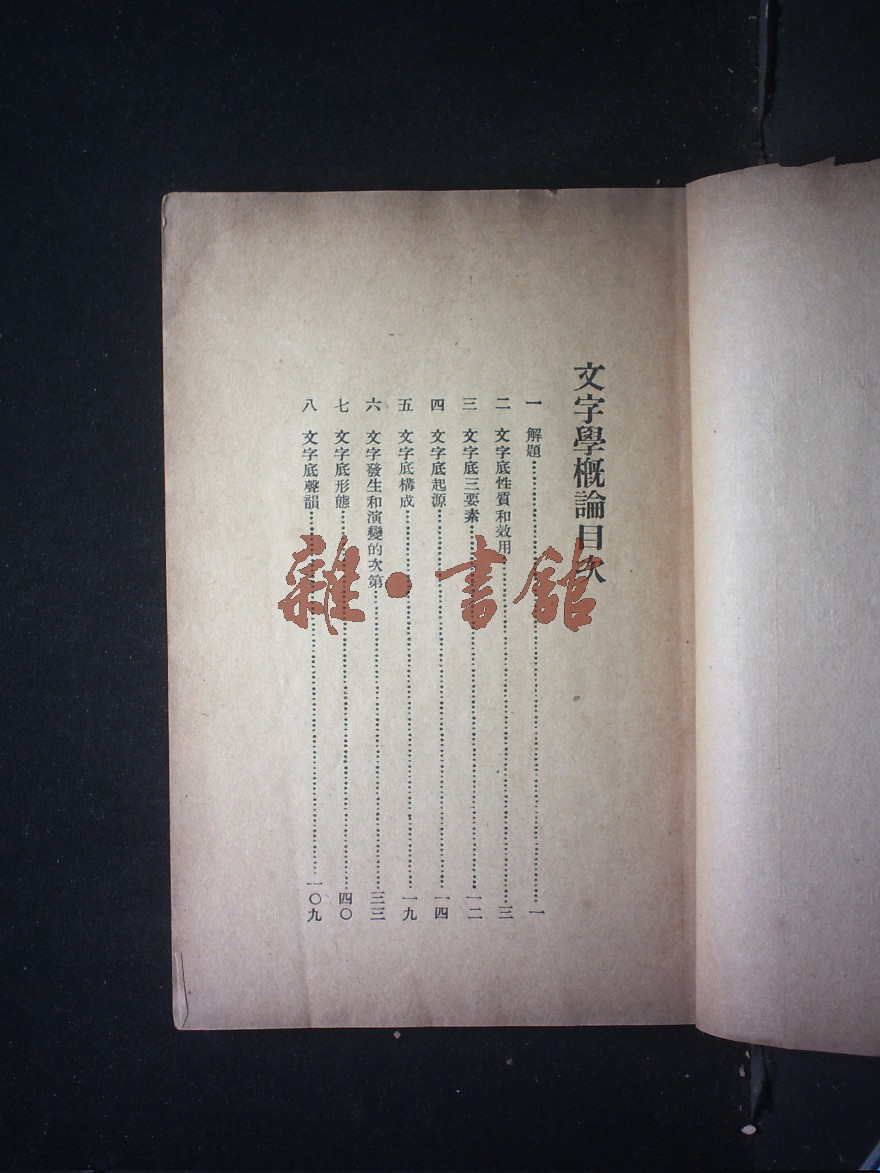 文字學概論目次
一 解題……一
二 文字底性質和效用……三
三 文字底三要素……一二
四 文字底起源……一四
五 文字底構成……一九
六 文字發生和演變的次第……三三
七 文字底形態……四〇
八 文字底聲韻……一〇九
雜·書館